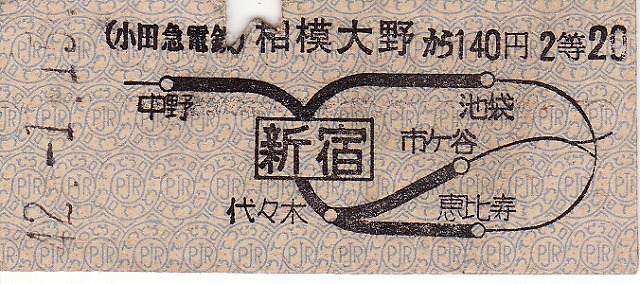 (小田急電鉄) 相模大野から140円 2等20
中野
池袋
新宿
市ケ谷
代々木
恵比寿
42.-1.15.